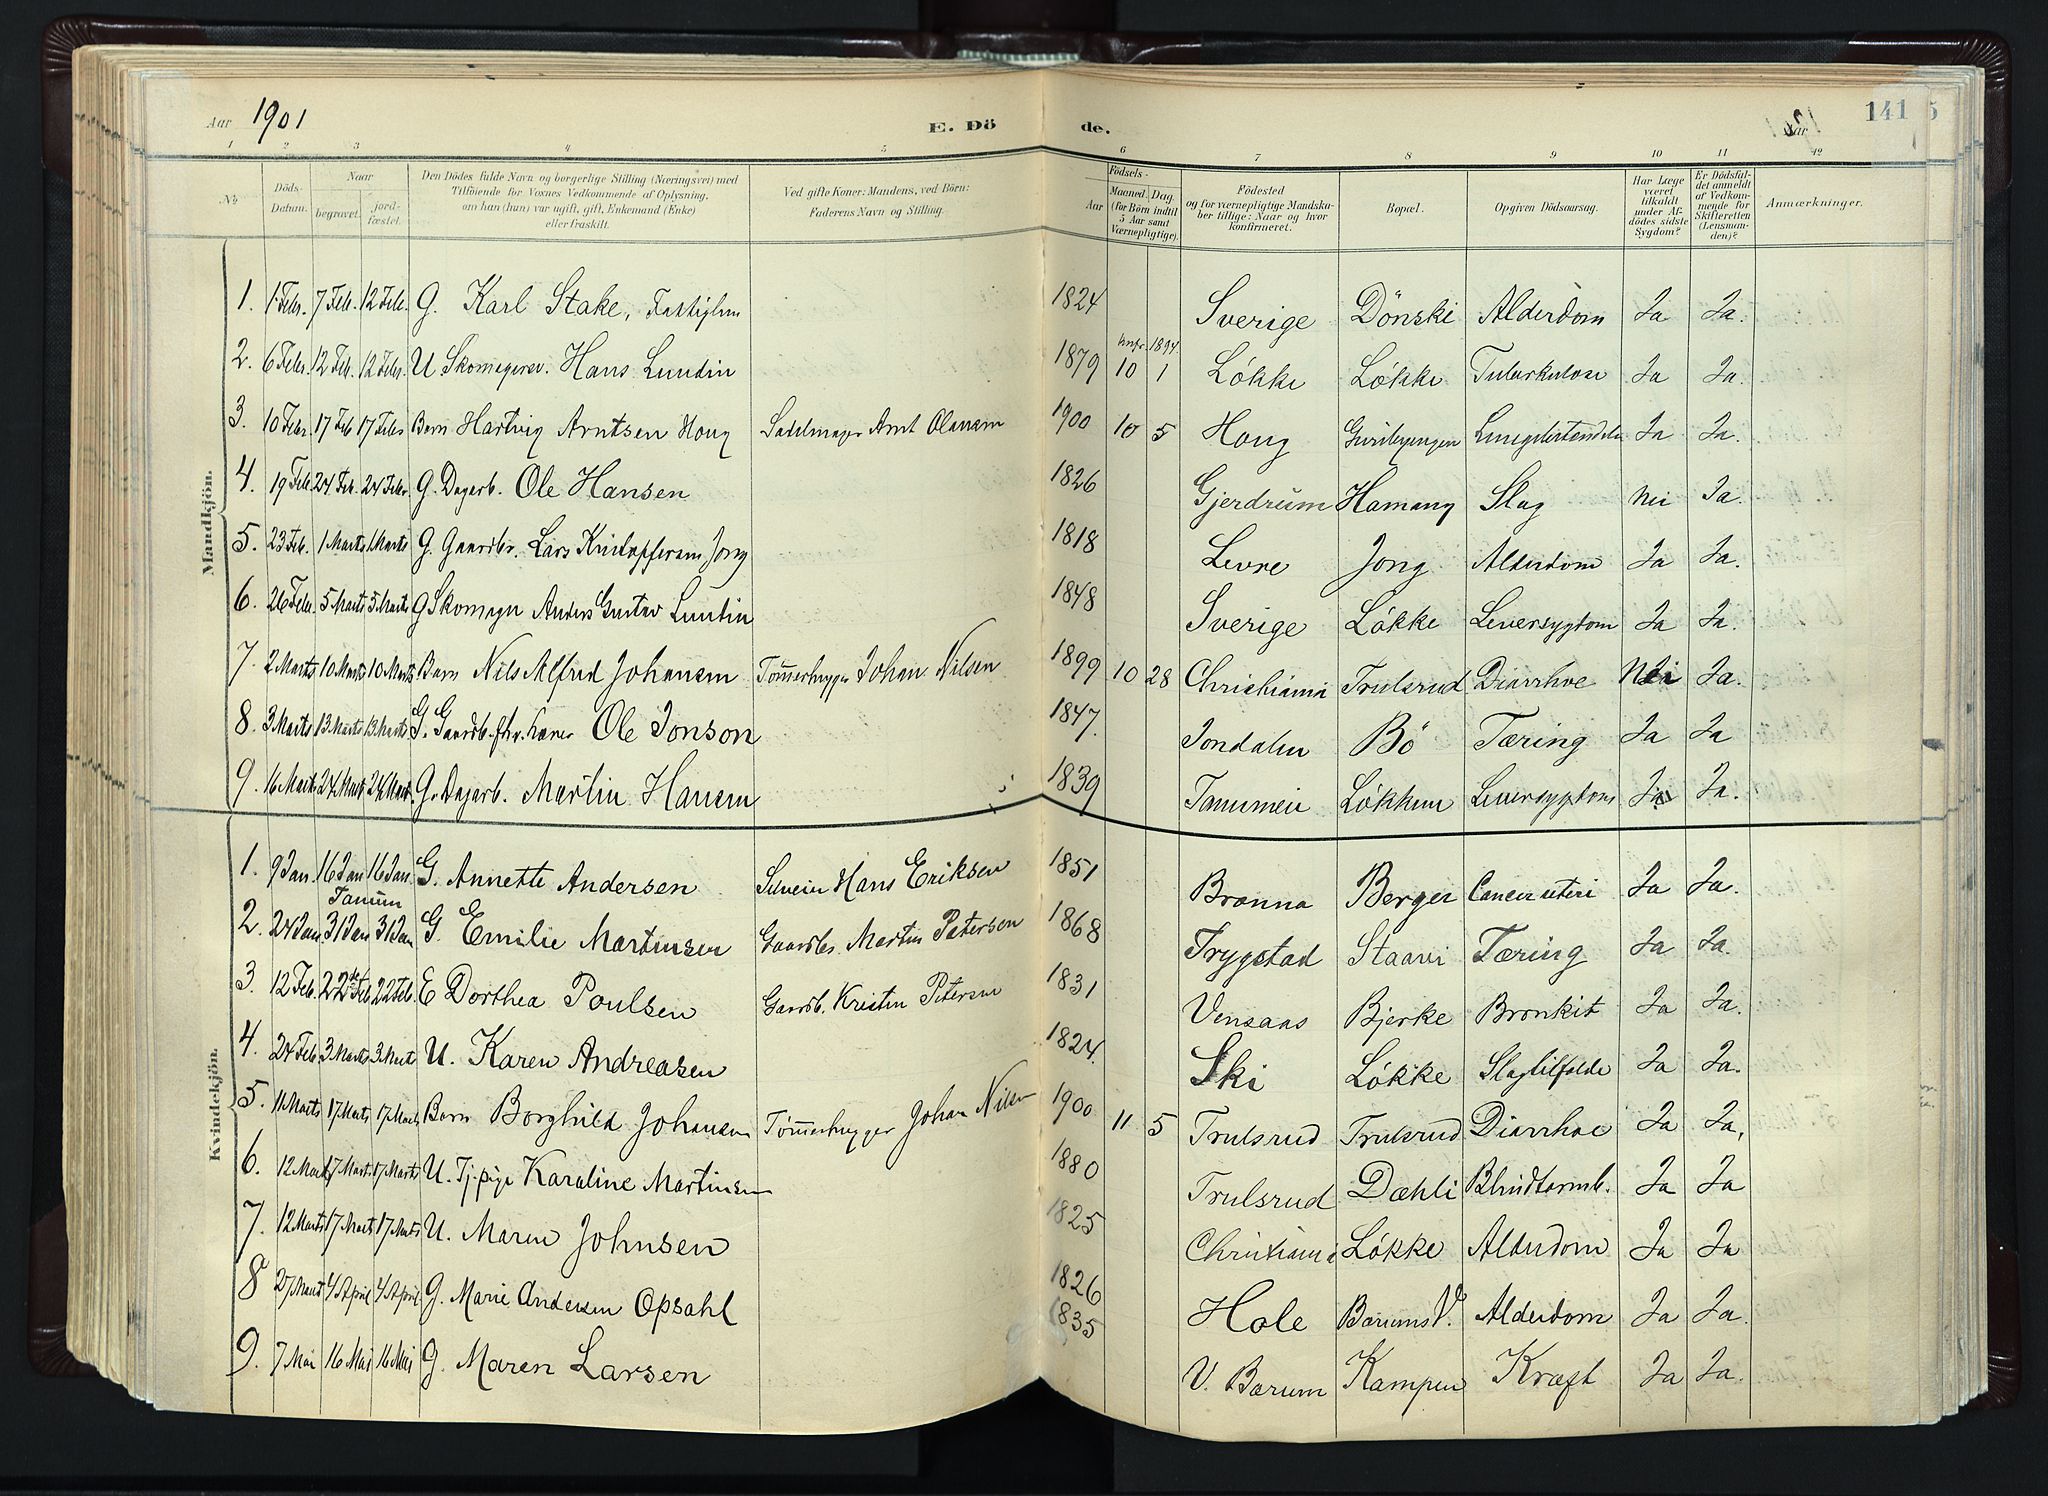 Aar 1901
E. Dö
de.
Aar
141
5
1 2 3 4 5 6 7 8 9 10 11 12
No
Döds-Datum.
Naar
begravet.
jord-fæstet.
Den Dödes fulde Navn og borgerlige Stilling (Næringsvei) med
Tilföiende for Voxnes Vedkommende af Oplysning,
om han (hun) var ugift, gift, Enkemand (Enke)
eller fraskilt.
Ved gifte Koner: Mandens, ved Börn:
Faderens Navn og Stilling.
Födsels-
Aar
Maaned. Dag.
(for Börn indtil
5 Aar samt
Værnepligtige).
Födested
og for værnepligtige Mandska-
ber tillige: Naar og hvor
konfirmeret.
Bopæl.
Opgiven Dödsaarsag.
Har Læge
været
tilkaldt
under Af-
dödes sidste
Sygdom?
Er Dödsfal-
det anmeldt
af Vedkom-
mende for
Skifteretten
(Lensman-
den)?
Anmærkninger.
Mandkjön.
1. 1 Febr. 7 Feb. 12 Feb. G. Karl Stake, 1824 Sverige Dönski Alderdom Ja Ja.
2. 6 Febr. 12 Feb. 12 Febr. U Skomager. Hans Lundin 1879 konfr. 1894. 10 1 Løkke Løkke Tuberkulose Ja Ja.
3. 10 Febr. 17 Feb 17 Febr Barn Hartvig Arntsen Houg Sadelmager Arnt Olausen 1900 10 5 Houg Ja Ja.
4. 19 Feb. 24 Feb. 24 Febr. G. Dagarb. Ole Hansen 1826 Gjerdrum Hamang Slag Nei Ja.
5. 23 Feb. 1 Marts 1 Marts G. Gaardbr. Lars Kristoffersen Jong 1818 Levre Jong Alderdom Ja Ja.
6. 26 Febr. 5 Marts 5 Marts G Skomagr Anders Gustav Lundin 1848 Sverige Løkke Leversygdom Ja Ja.
7. 2 Marts 10 Marts 10 Marts Barn Nils Alfred Johansen Tømmerhugger Johan Nilsen 1899 10 28 Christiania Trulsrud Diarrhoe Nei Ja.
8. 3 Marts 13 Marts 13 Marts G. Gaardb. Ole Jonson 1847. Jondalen Bö Tæring Ja Ja
9. 16 Marts 24 Mart 24 Mart. G. Dagarb. Martin Hansen 1839 Løkken Leversygdom Ja Ja.
Kvindekjön.
1. 9 Jan. 16 Jan 16 Jan. G. Annette Andersen Hans Eriksen 1851 Brønna Berger Cancer uteri Ja Ja.
Tanum
2. 24 Jan 31 Jan 31 Jan G. Emilie Martinsen Gaardbr. Martin Peterson 1868 Trygstad Staavi Tæring Ja Ja.
3. 12 Feb. 22de Feb. 22 Feb. E Dorthea Poulsen Gaardb. Kristen Petersen 1831 Vensaas Bjerke Bronkit Ja Ja.
4. 24 Feb 3 Marts 3 Marts U. Karen Andreasen 1824. Ski Løkke Slagtilfælde Ja Ja.
5. 11 Marts 17 Marts 17 Marts Barn Borghild Johansen Tømmerhugger Johan Nilsen 1900 11 5 Trulsrud Trulsrud Diarrhoe Ja Ja,
6. 12 Mart 17 Mart 17 Marts U. Tj.pige Karoline Martinsen 1880 Trulsrud Dæhli Blindtarmb. Ja Ja
7. 12 Marts 17 Marts 17 Marts U. Maren Johnsen 1825 Christiania Løkke Alderdom Ja Ja
8 27 Marts 4 April 4 April G. Marie Andersen Opsahl 1826 Hole Bærums V. Alderdom Ja Ja.
9. 7 Mai 16 Mai 16 Mai G. Maren Larsen 1835 V. Bærum Kampen Kræft Ja Ja.